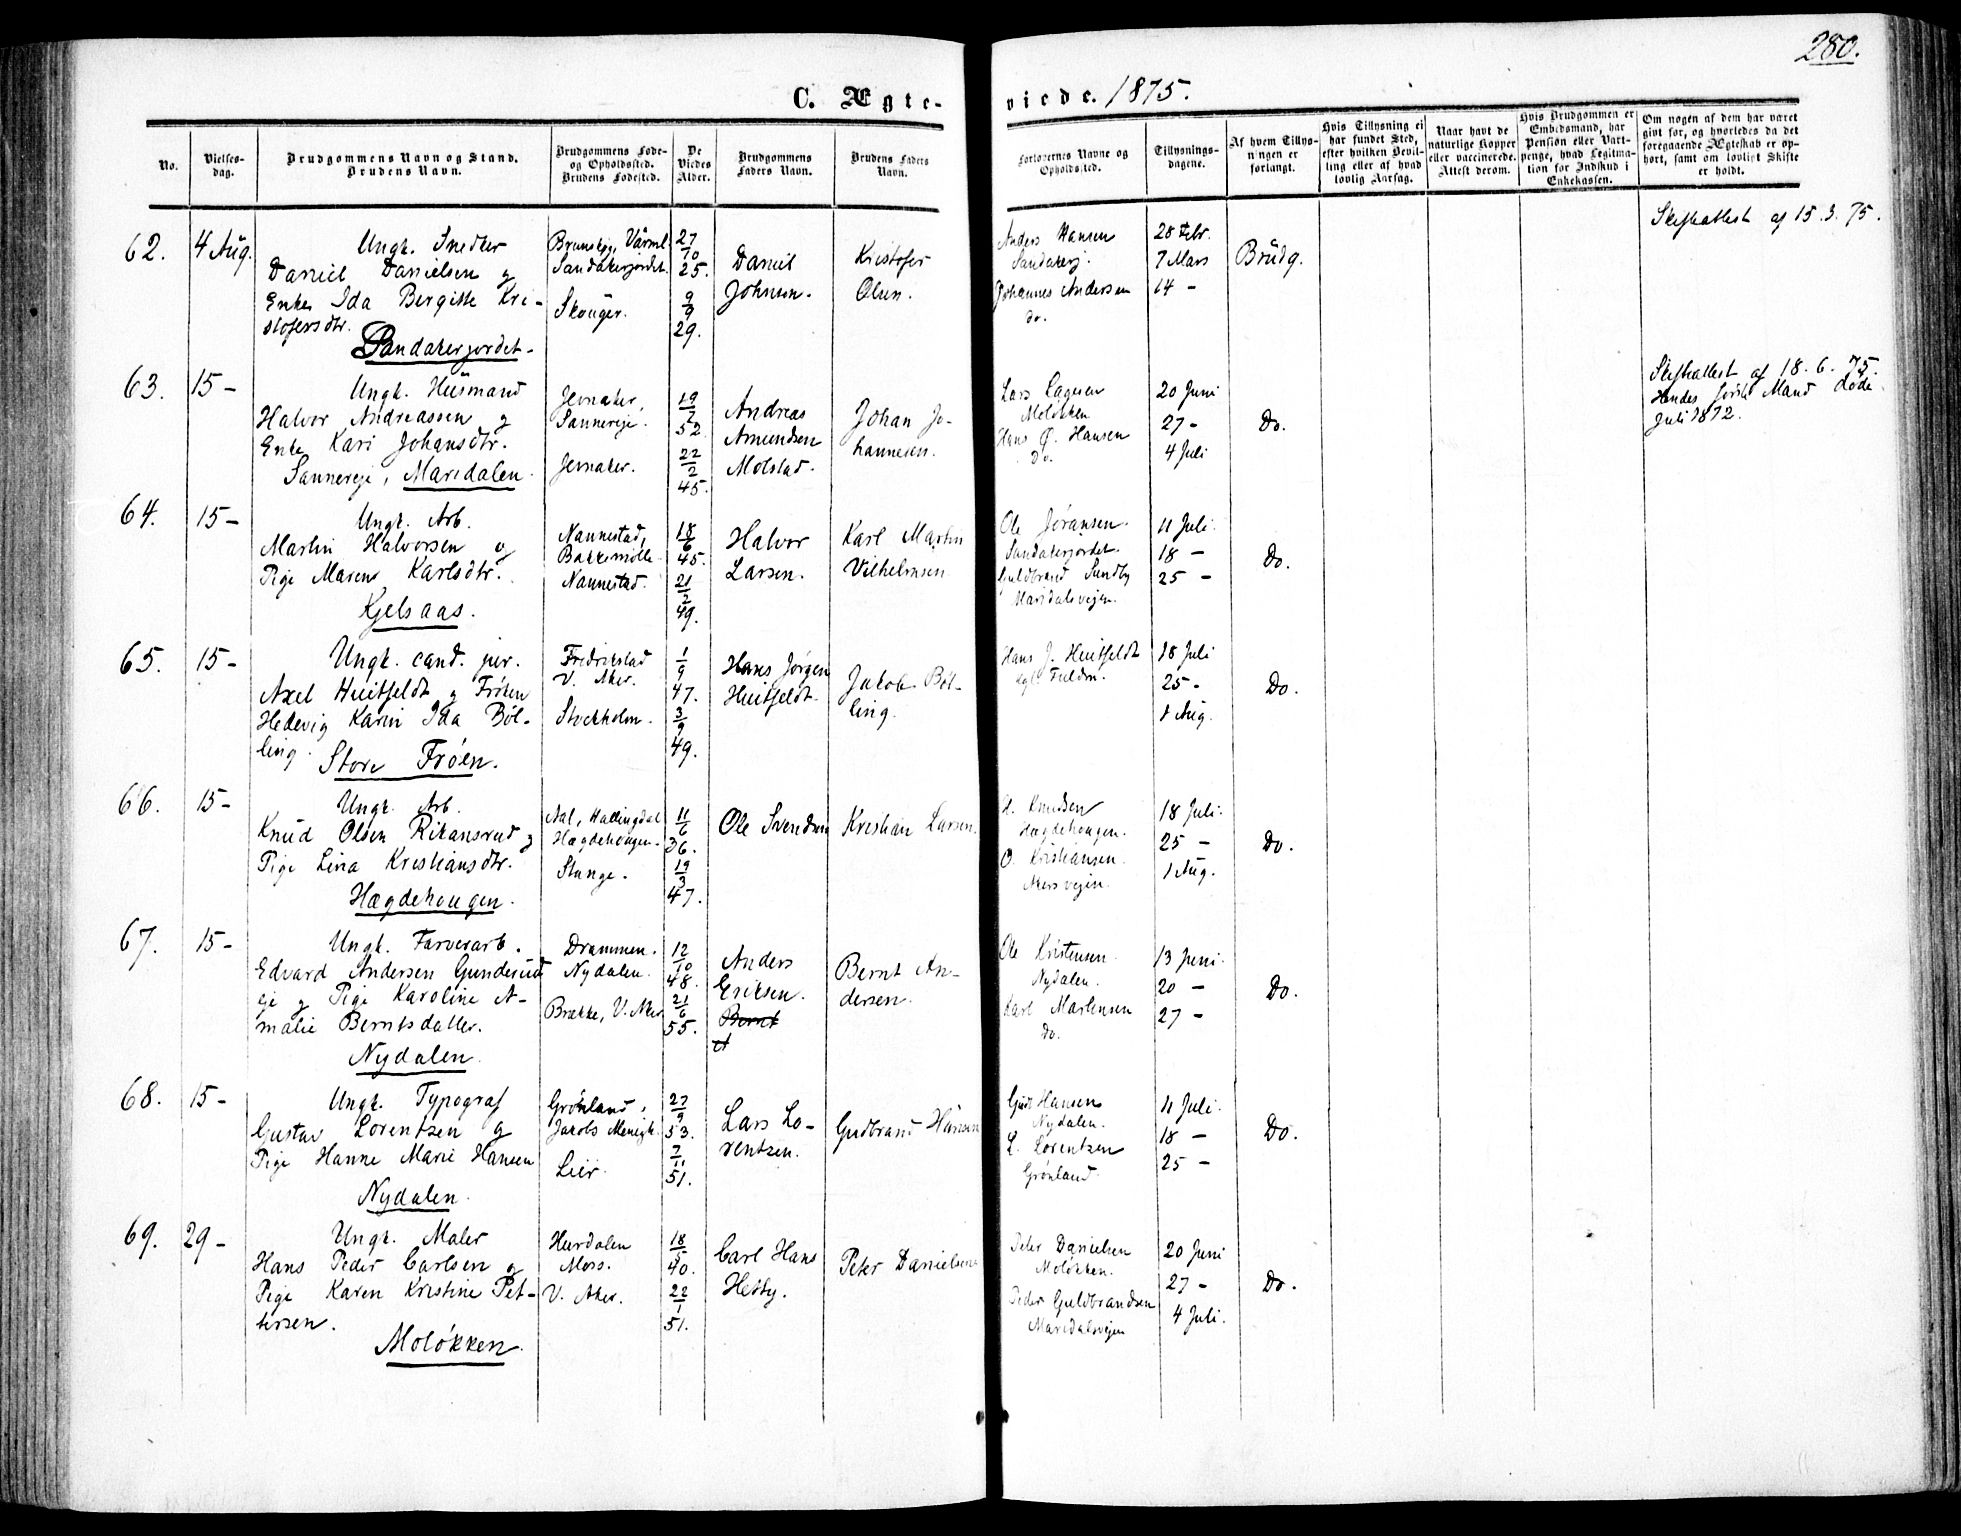 280.
C. Ægte-
viede. 1875.
No.
Vielses-
dag.
Brudgommens Navn og Stand.
Brudens Navn.
Brudgommens Føde-
og Opholdssted.
Brudens Fødested.
De
Viedes
Alder.
Brudgommens
Faders Navn.
Brudens Faders
Navn.
Forlovernes Navne og
Opholdssted.
Tillysnings-
dagene.
Af hvem Tillys-
ningen er
forlangt.
Hvis Tillysning ei
har fundet Sted,
efter hvilken Bevil-
ling eller af hvad
lovlig Aarsag.
Naar havt de
naturlige Kopper
eller vaccinerede.
Attest derom.
Hvis Brudgommen er
Embedsmand, har
Pension eller Vart-
penge, hvad Legitima-
tion for Indskud i
Enkekassen.
Om nogen af dem har været
givt for, og hvorledes da det
foregaaende Ægteskab er op-
hørt, samt om lovligt Skifte
er holdt.
62.
4 Aug.
Ungk. Snedker
Daniel Danielsen og
Enke Ida Bergitte Kri-
stofersdtr.
Sandakerjordet.
Brunskog, Värml.
Sandakerjordet.
Skouger.
27
10
25.
9
9
29.
Daniel
Johnson.
Kristofer
Olsen.
Anders Hansen
Sandakerj.
Johannes Andersen
do.
28 Febr.
7 Mars
14 -
Brudg.
Skifteattest af 15.3.75.
63.
15 -
Ungk. Husmand
Halvor Andreassen og
Enke Kari Johansdtr.
Sannereje, Maridalen.
Jevnaker,
Sannereje.
Jevnaker.
19
2
52.
22
2
45.
Andreas
Amundsen
Molstad.
Johan Jo-
hannesen.
Lars
Moløkken
Hans Ø. Hansen
Do.
20 Juni
27 -
4 Juli
Do.
Skifteattest af 18.6.75.
Hendes første Mand døde
Juli 1872.
64.
15 -
Ungk. Arb.
Martin Halvorsen og
Pige Maren Karlsdtr.
Kjelsaas.
Nannestad,
Bakkemølle.
Nannestad.
18
6
45.
21
2
49.
Halvor
Larsen.
Karl Martin
Vilhelmsen
Ole Jøransen.
Sandakerjordet.
Guldbrand Sundby
Maridalsvejen.
11 Juli.
18 -
25 -
Do.
65.
15 -
Ungk. cand. jur.
Axel Huitfeldt og Frøken
Hedevig Karin Ida Bøl-
ling.
Store Frøen.
Fredrikstad
V. Aker.
Stockholm.
1
9
47.
3
9
49.
Hans Jørgen
Huitfeldt.
Jakob Bøl-
ling.
Hans J. Huitfeldt
18 Juli
25 -
1 Aug.
Do.
66.
15 -
Ungk. Arb.
Knud Olsen Rikansrud og
Pige Lina Kristiansdtr.
Hægdehougen.
Aal, Hallingdal
Hægdehougen.
Stange.
11
6
36.
19
3
47.
Ole Svendsen
Kristian Larsen.
Knudsen
Hægdehougen.
O. Kristiansen
Akersvejen.
18 Juli.
25 -
1 Aug.
Do.
67.
15 -
Ungk. Farverarb.
Edvard Andersen Gunderud
eje og Pige Karoline A-
malie Berntsdatter.
Nydalen.
Drammen.
Nydalen.
Brække, V. Aker
12
10
48.
21
6
55.
Anders
Eriksen.
Bernt
Bernt An-
dersen.
Ole Kristensen
Nydalen.
Karl Martensen
do.
13 Juni.
20 -
27 -
Do.
68.
15 -
Ungk. Typograf
Gustav Lorentzen og
Pige Hanne Marie Hansen
Nydalen.
Grønland,
Jakobs Menigh.
Lier.
27
9
53.
7
11
51.
Lars Lo-
rentzen.
Gudbrand Hansen
Gudb Hansen
Nydalen.
L. Lorentzen
Grønland.
11 Juli.
18 -
25 -
Do.
69.
29 -
Ungk. Maler
Hans Peder Carlsen og
Pige Karen Kristine Pet-
tersen.
Moløkken.
Hurdalen
Moss.
V. Aker.
18
5
40.
22
1
51.
Carl Hans
Hesby.
Peter Danielsen
Peter Danielsen
Moløkken.
Peder Guldbrandsen
Maridalsvejen
20 Juni
27 -
4 Juli.
Do.